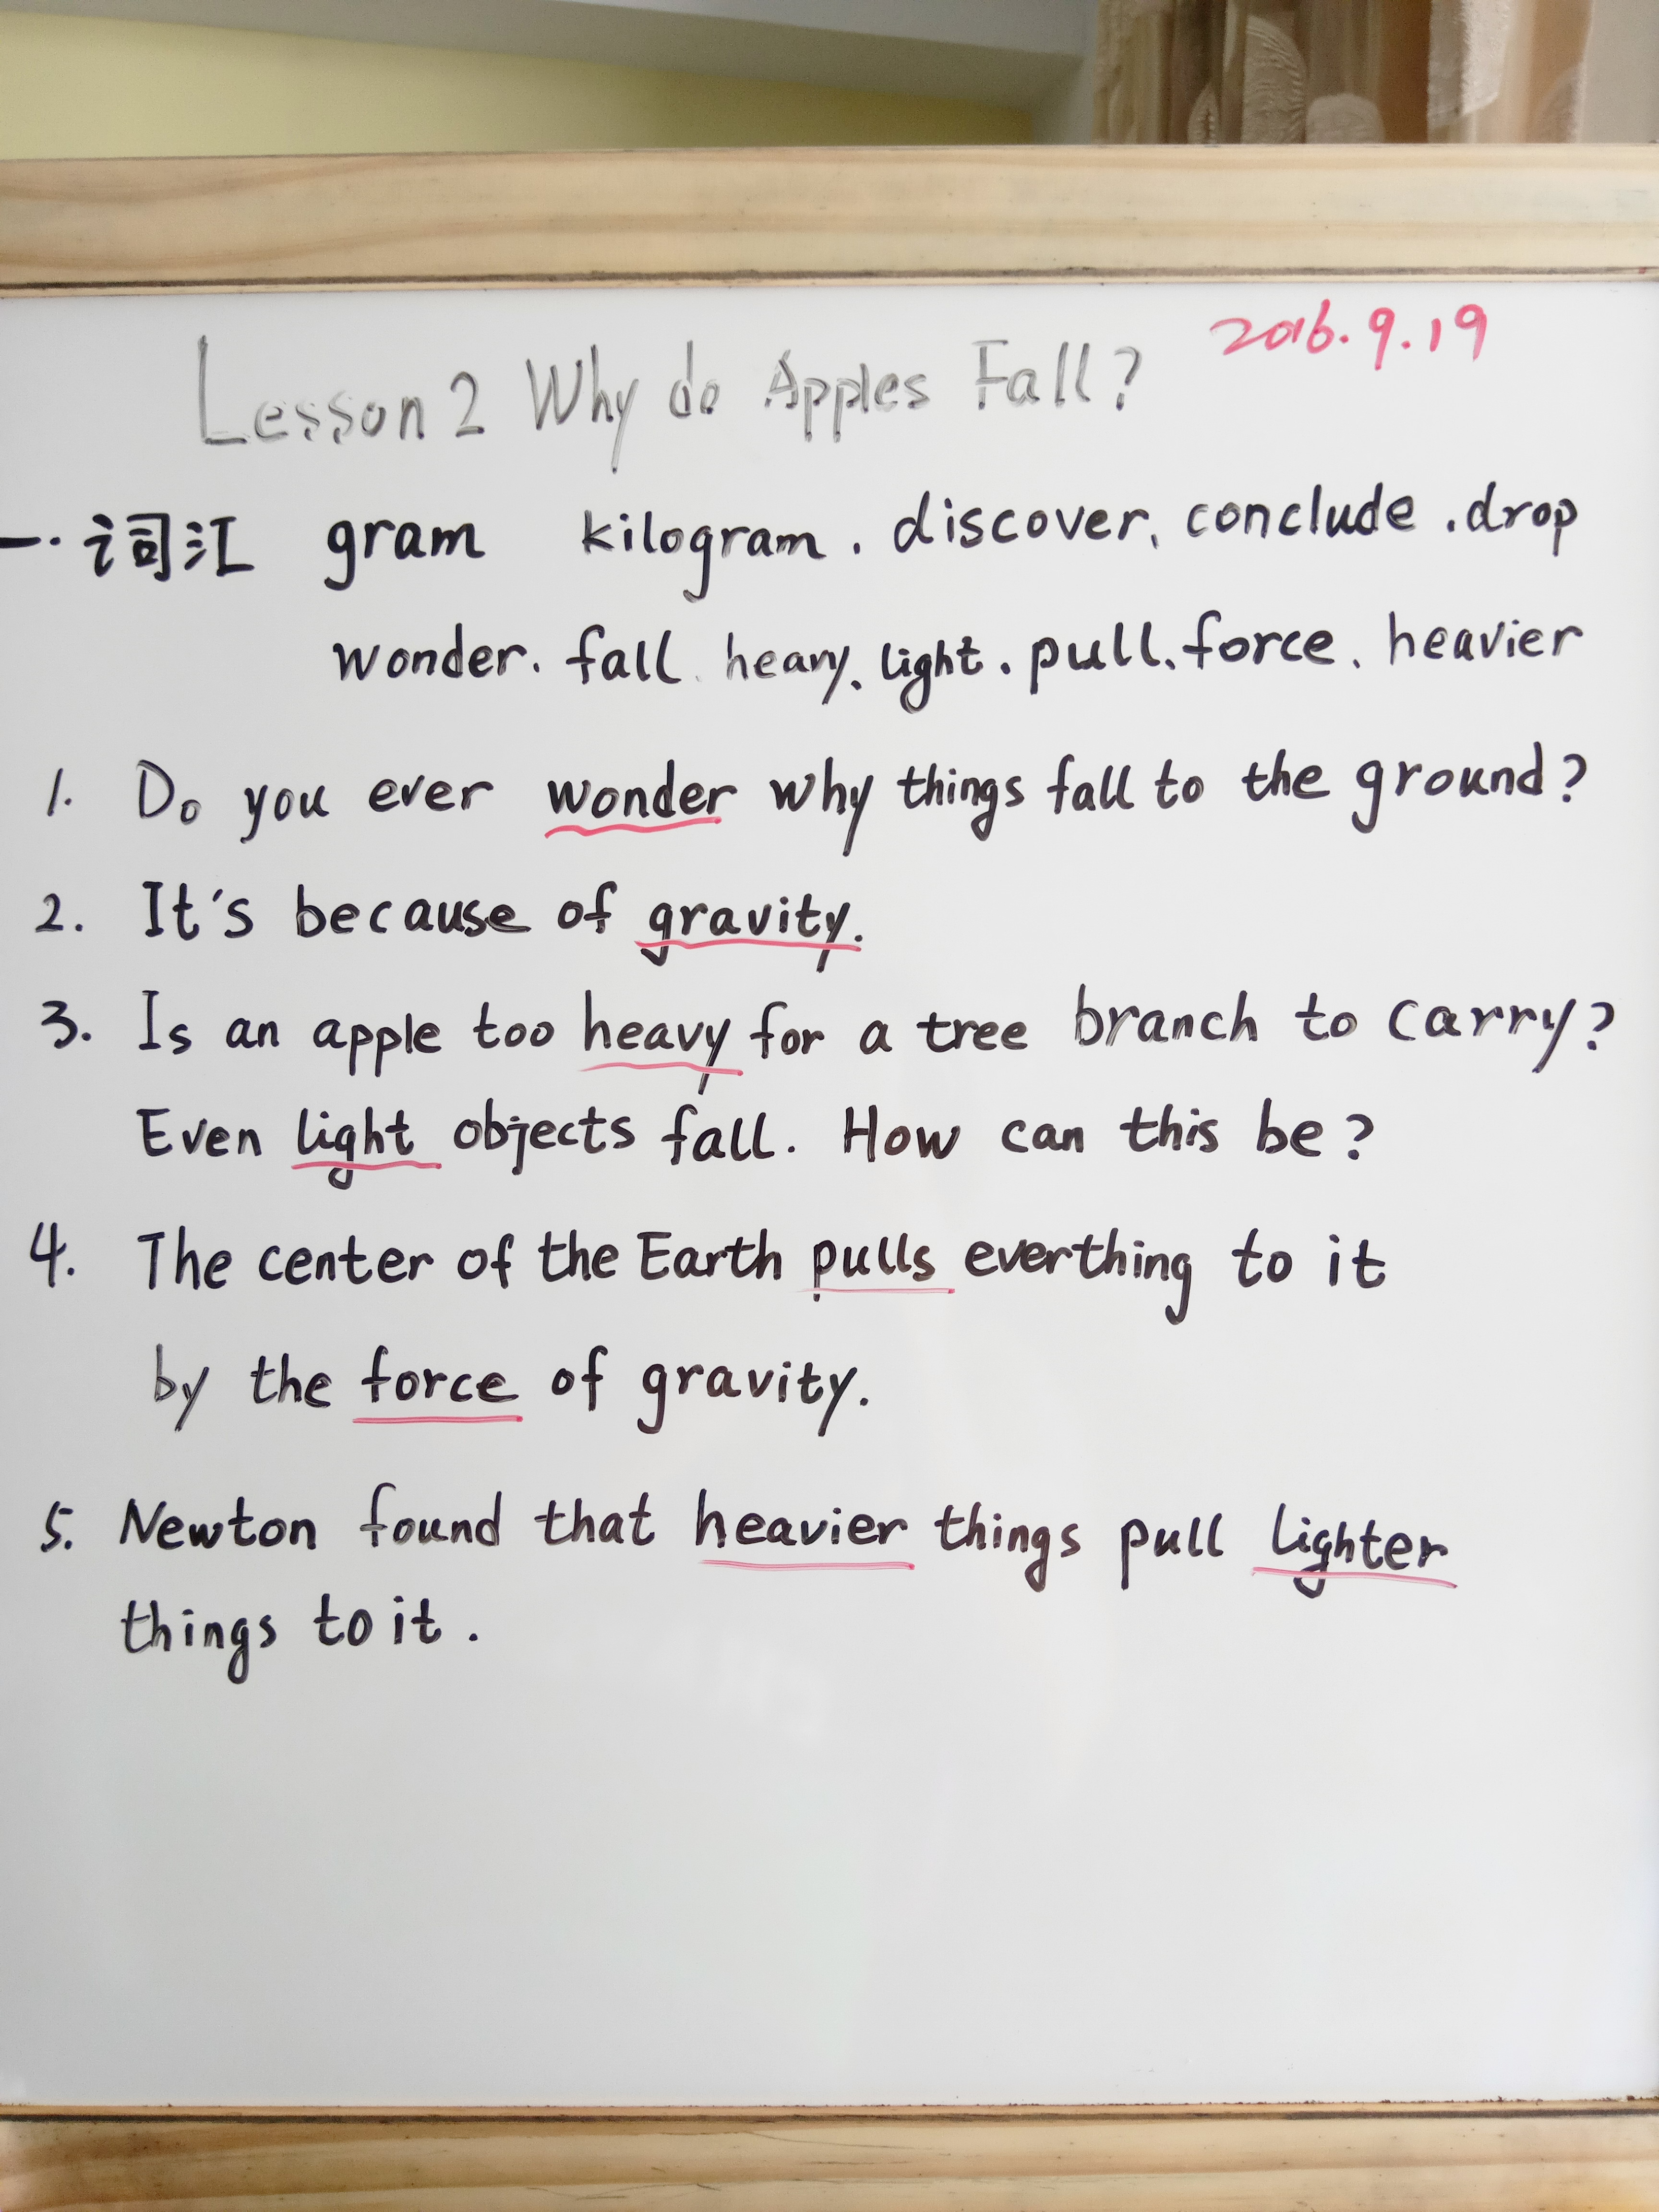 2016.9.19
Lesson 2 Why do Apples Fall?
一. 词汇 gram kilogram. discover, conclude .drop
wonder. fall. heavy. light. pull. force. heavier
1. Do you ever wonder why things fall to the ground?
2. It's because of gravity.
3. Is an apple too heavy for a tree branch to carry?
Even light objects fall. How can this be?
4. The center of the Earth pulls everthing to it
by the force of gravity.
5. Newton found that heavier things pull lighter
things to it.